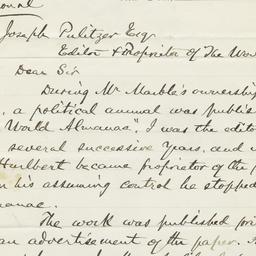 Joseph Pulitzer Esqr
Editor & Proprietor of The Wo
Dear Sir
During Mr Marble's ownership
, a political annual was publis
World Almanac", I was the edito
several successive years, and
Hurlbert became proprietor of the
his assuming control he stopped
manac.
The work was published pri
an advertisement of the paper.